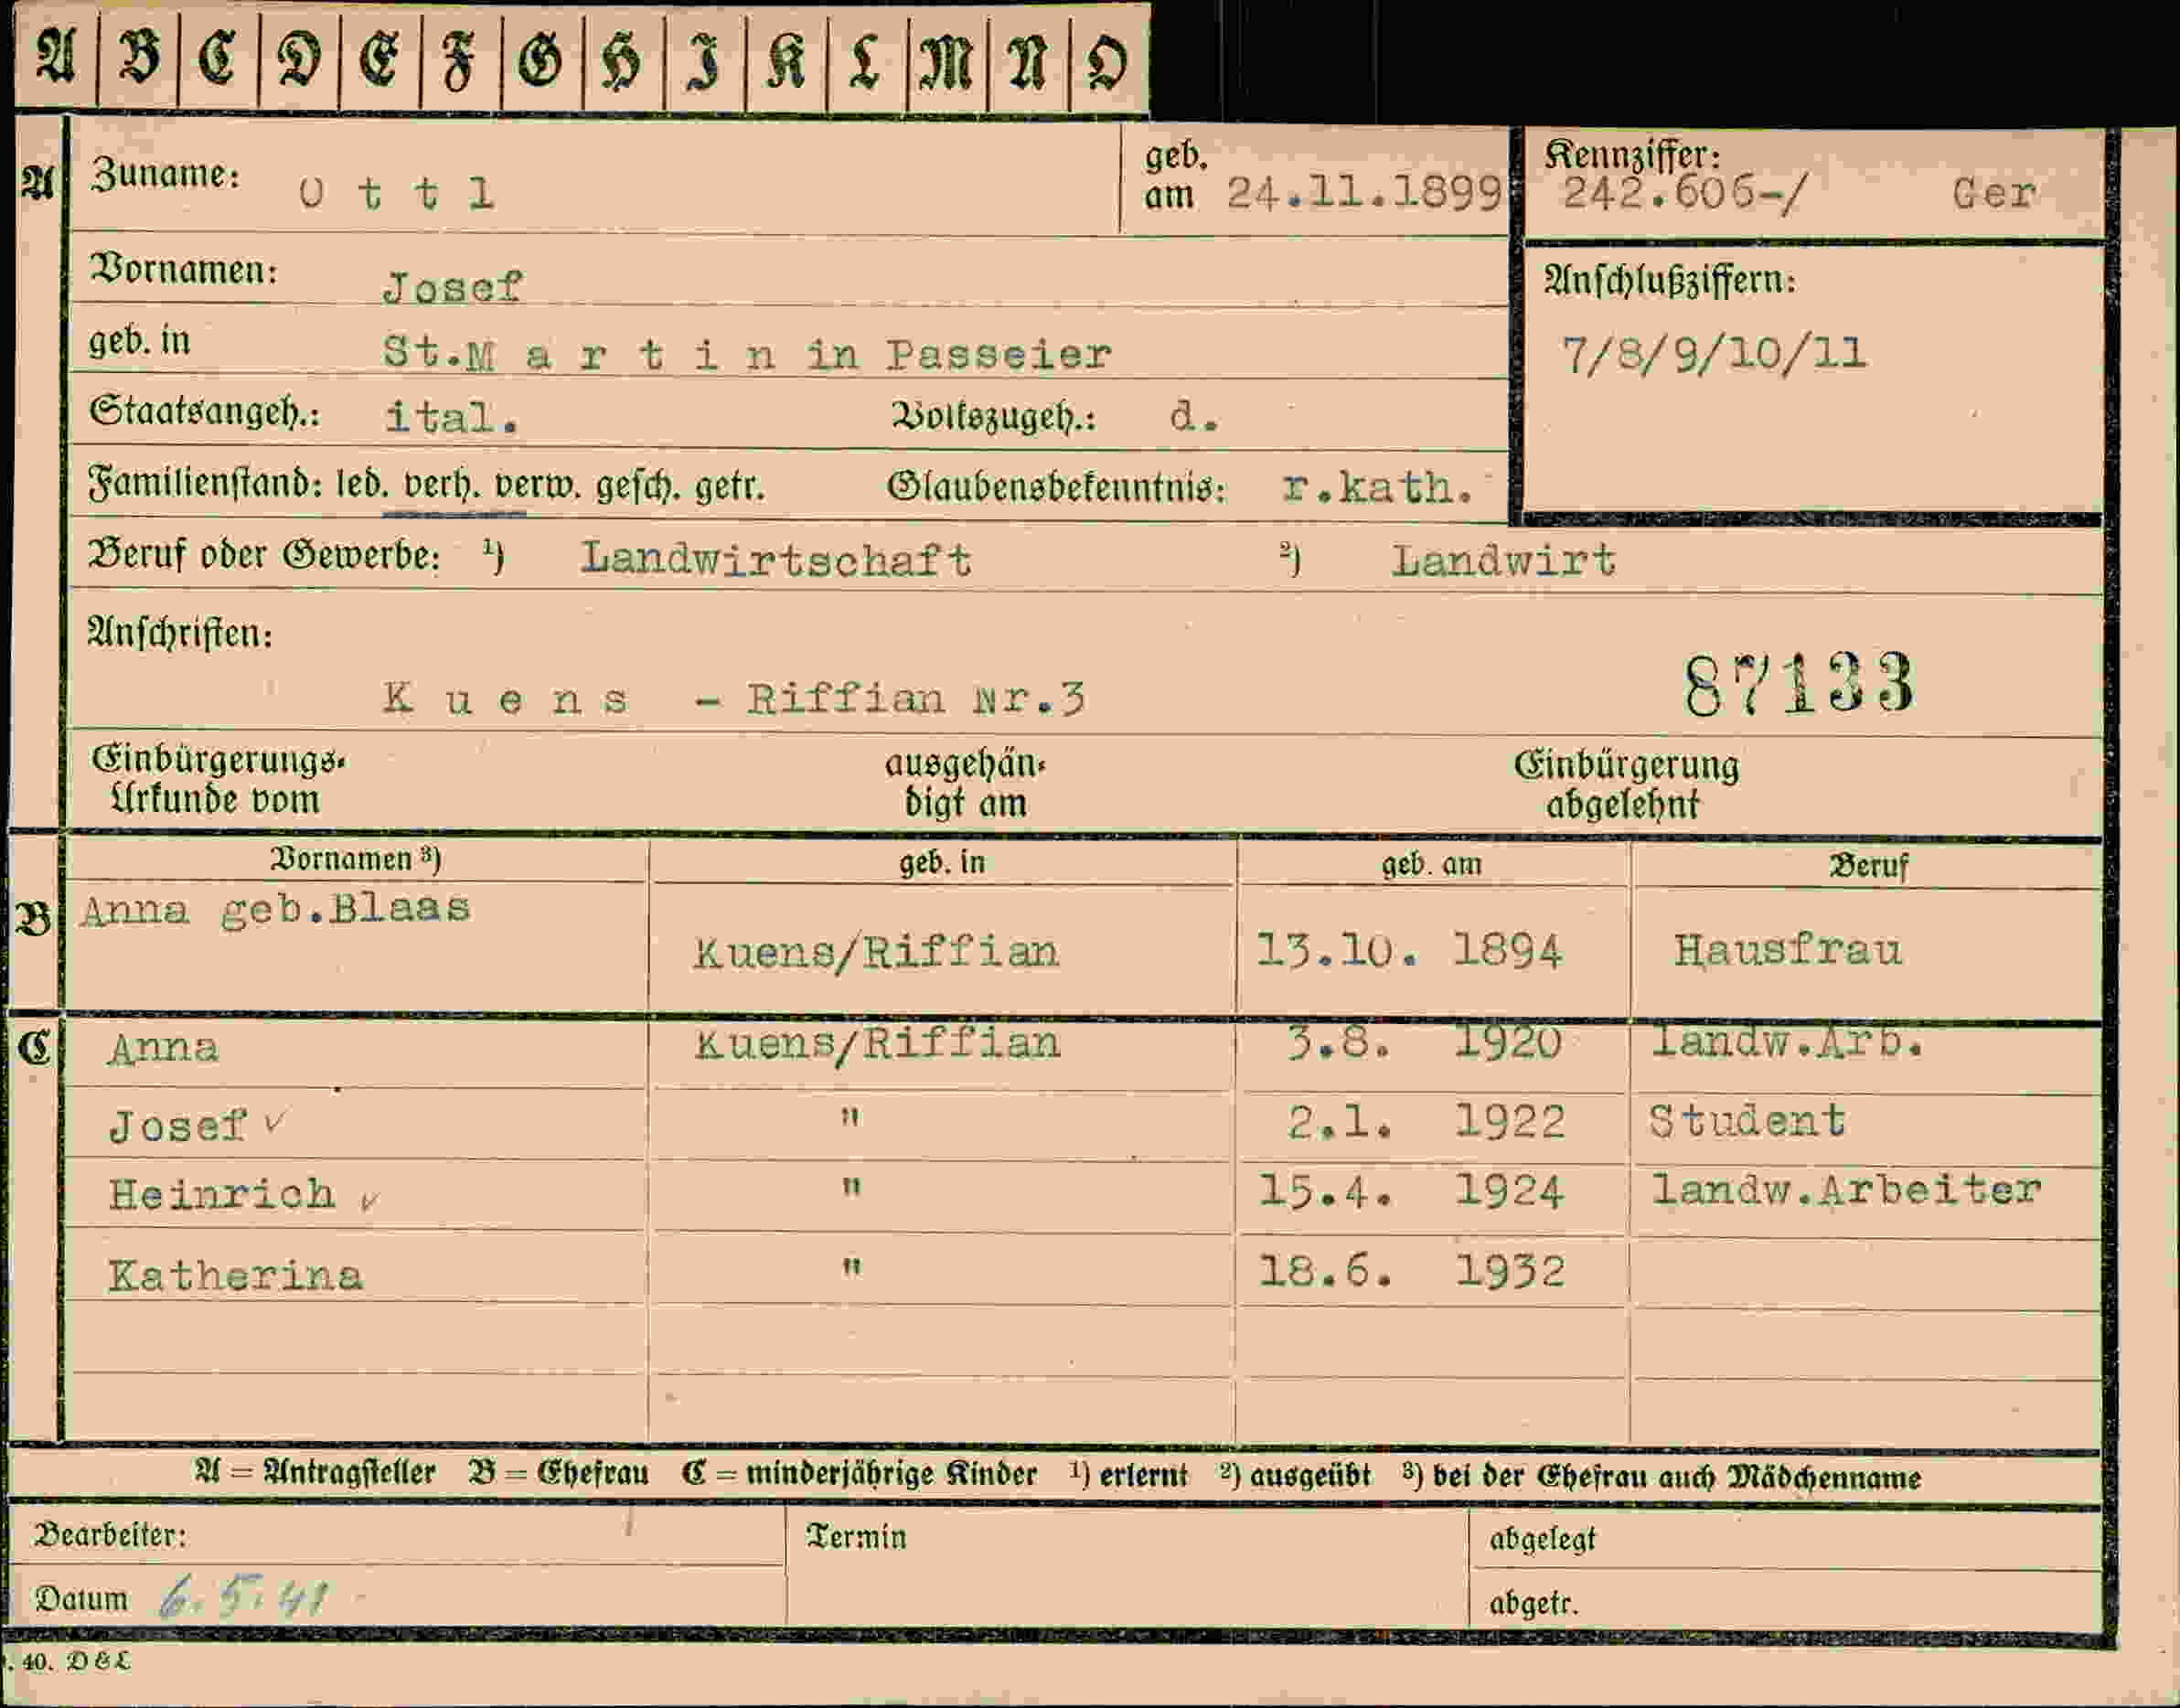 A B C D E F G H I K L M N O
A Zuname: O t t l geb. am 24.11.1899 Kennziffer: 242.606-/ Ger
Vornamen: Josef Anschlußziffern:
geb. in St.M a r t i n in Passeier 7/8/9/10/11
Staatsangeh.: ital. Volkszugeh.: d.
Familienstand: led. verh. verw. gesch. getr. Glaubensbekenntnis: r.kath.
Beruf oder Gewerbe: ¹) Landwirtschaft ²) Landwirt
Anschriften:
K u e n s - Riffian Nr.3 87133
Einbürgerungs-
Urkunde vom
ausgehän-
digt am
Einbürgerung
abgelehnt
Vornamen ³) geb. in geb. am Beruf
B Anna geb.Blaas
Kuens/Riffian 13.10. 1894 Hausfrau
C Anna Kuens/Riffian 3.8. 1920 landw.Arb.
Josef ✓ " 2.1. 1922 Student
Heinrich ✓ " 15.4. 1924 landw.Arbeiter
Katherina " 18.6. 1932
A = Antragsteller B = Ehefrau C = minderjährige Kinder ¹) erlernt ²) ausgeübt ³) bei der Ehefrau auch Mädchenname
Bearbeiter: Termin abgelegt
Datum 6.5.41 abgetr.
. 40. D&L